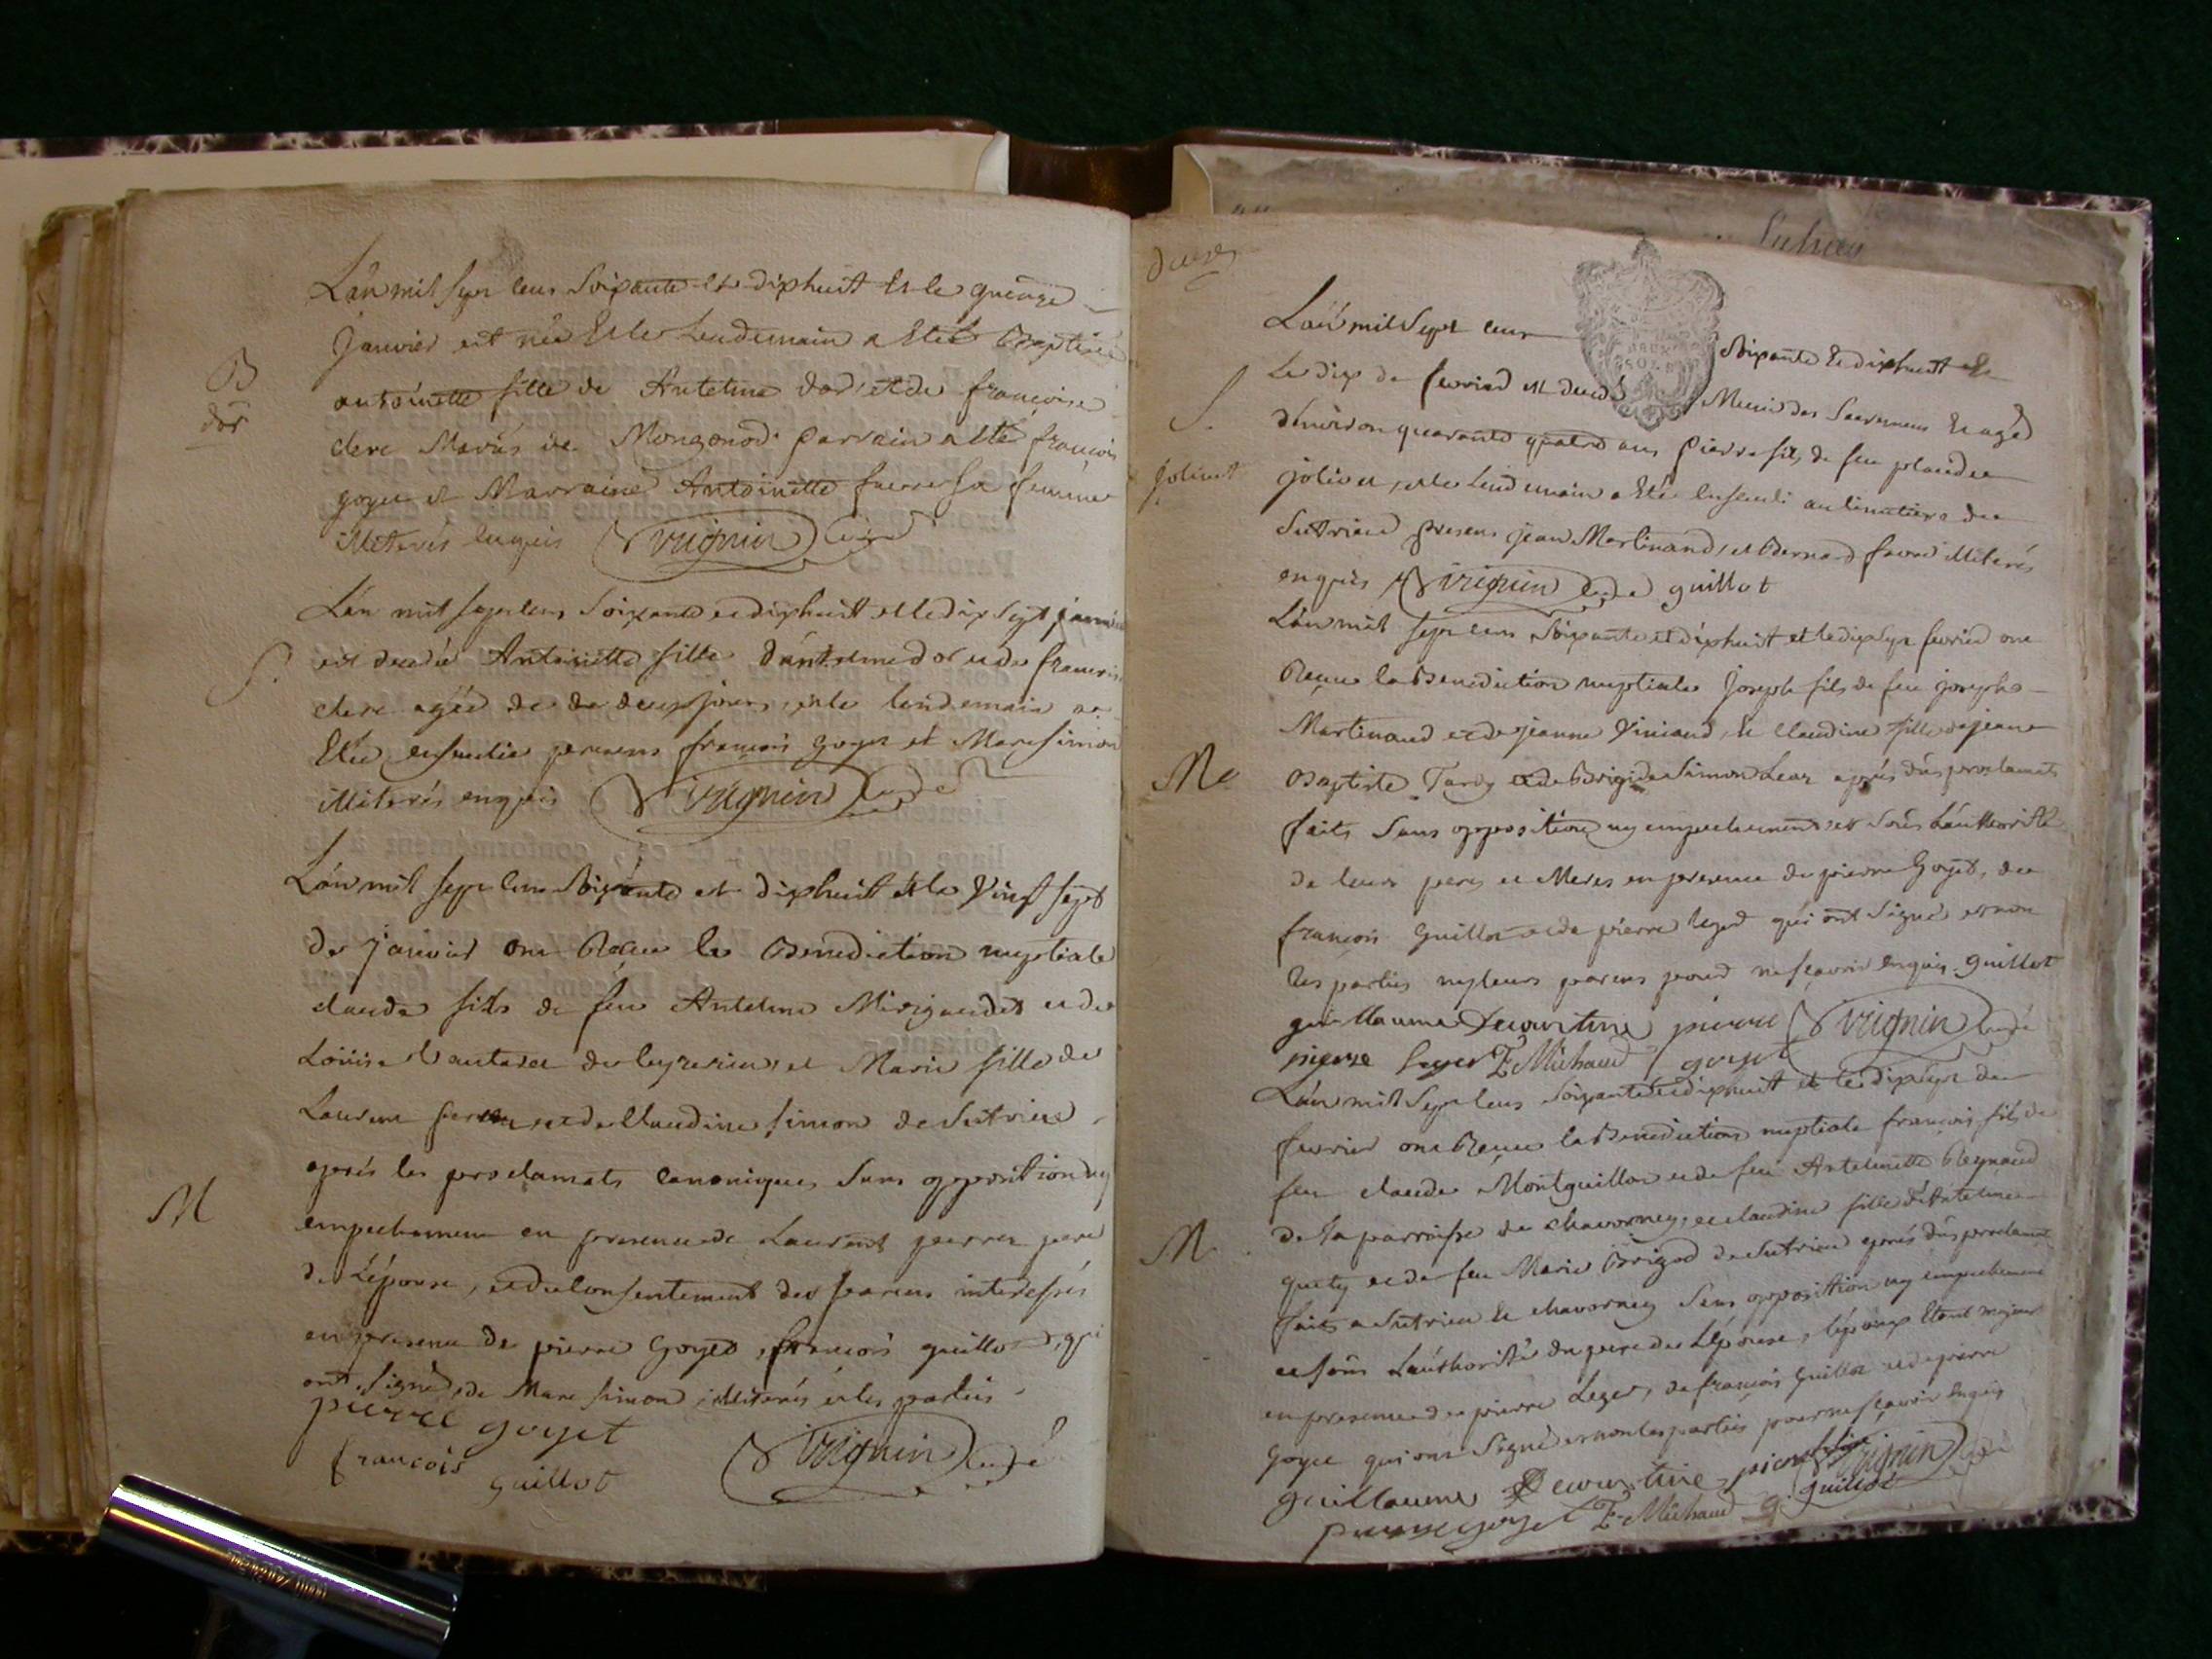 L'an mil sept cens soixante et dixhuit et le quinze
Janvier est née et le lendemain a eté Baptisée
B
dor
antoinette fille de Anteme dor, et de françoise
clerc Mariés de Mongonod parrain a eté françois
goyet et Marraine Antoinette sa femme
illiterés enquis Vrignin curé
L'an mil sept cens soixante et dixhuit et le dix sept janvier
S.
est decedée Antoinette fille d'Anteme dor et de françoise
clerc agée de de deux jours, et le lendemain a
eté ensevelie presens françois goyet et Marc simon
illiterés enquis Vrignin curé
L'an mil sept cens soixante et dixhuit et le vingt sept
de janvier ont Reçu la Benediction nuptiale
claude fils de feu Antelme et de
Louise de et Marie fille de
Laurent et de Claudine simon de Sutrieu
aprés les proclamats canoniques sans opposition ny
M
empechement en presence de Laurent pere
de L'épouse, et du consentement des parens interessés
en presence de pierre Goyet, françois guillot, qui
ont signé, de Marc simon illiterés et les parties
pierre goyet
francois guillot Vrignin curé
L'an mil sept cens soixante et dixhuit et
Le dix de fevrier est decedé Muni des Sacremens et agé
S.
d'environ quarante quatre ans pierre fils de feu claude
jolivet
jolivet, et le lendemain a eté enseveli au cimetiere de
Sutrieu presens jean Martinand, et Bernard favre illiterés
enquis Vrignin curé guillot
L'an mil sept cens soixante et dixhuit et le dix sept fevrier ont
Reçu la Benediction nuptiale Joseph fils de feu joseph
Martinand et de jeanne Viniand, et Claudine fille de jean
M
Baptiste Tardy et de Brigide Simon Lear aprés dûs proclamats
faits sans opposition ny empechement et sous L'authorité
de leurs peres et Meres en presence de pierre Goyet, de
françois Guillot et de pierre leger qui ont signé et non
les parties ny leurs parens pour ne sçavoir enquis guillot
guillaume Decourtine pierre Vrignin curé
pierre leger E Michaud goyet
L'an mil sept cens soixante et dixhuit et le dix sept de
fevrier ont Reçu la Benediction nuptiale françois fils de
feu claude Montguillon et de feu Antelmette Reynaud
de la parroisse de chavornay, et claudine fille d'Antelme
M
et de feu Marie Brigod de Sutrieu aprés dûs proclamats
faits a Sutrieu et chavornay sans opposition ny empechement
et sous L'authorité du pere de L'épouse, l'époux etant majeur
en presence de pierre Leger, de françois Guillot et de pierre
goyet qui ont signé et non les parties pour ne sçavoir enquis
guillaume Decourtine pierre leger Vrignin curé
pierre goyet E Michaud guillot